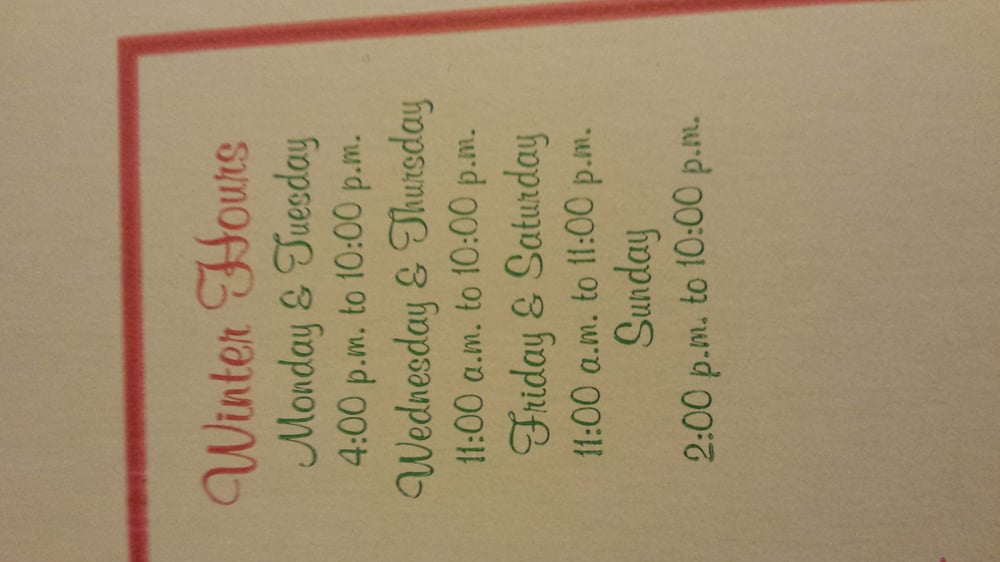 Winter Hours
Monday & Tuesday
4:00 p.m. to 10:00 p.m.
Wednesday & Thursday
11:00 a.m. to 10:00 p.m.
Friday & Saturday
11:00 a.m. to 11:00 p.m.
Sunday
2:00 p.m. to 10:00 p.m.